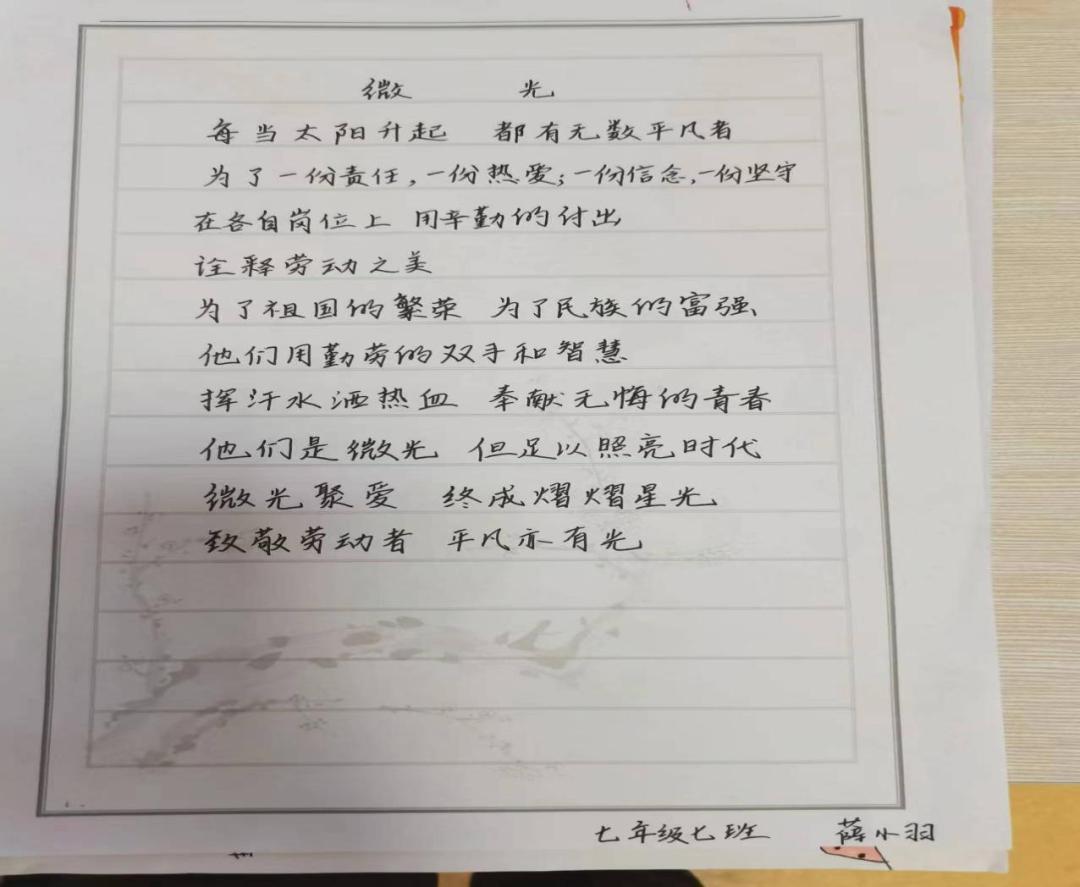 微 光
每当太阳升起 都有无数平凡者
为了一份责任,一份热爱;一份信念,一份坚守
在各自岗位上 用辛勤的付出
诠释劳动之美
为了祖国的繁荣 为了民族的富强
他们用勤劳的双手和智慧
挥汗水洒热血 奉献无悔的青春
他们是微光 但足以照亮时代
微光聚爱 终成熠熠星光
致敬劳动者 平凡亦有光
七年级七班 薛小羽